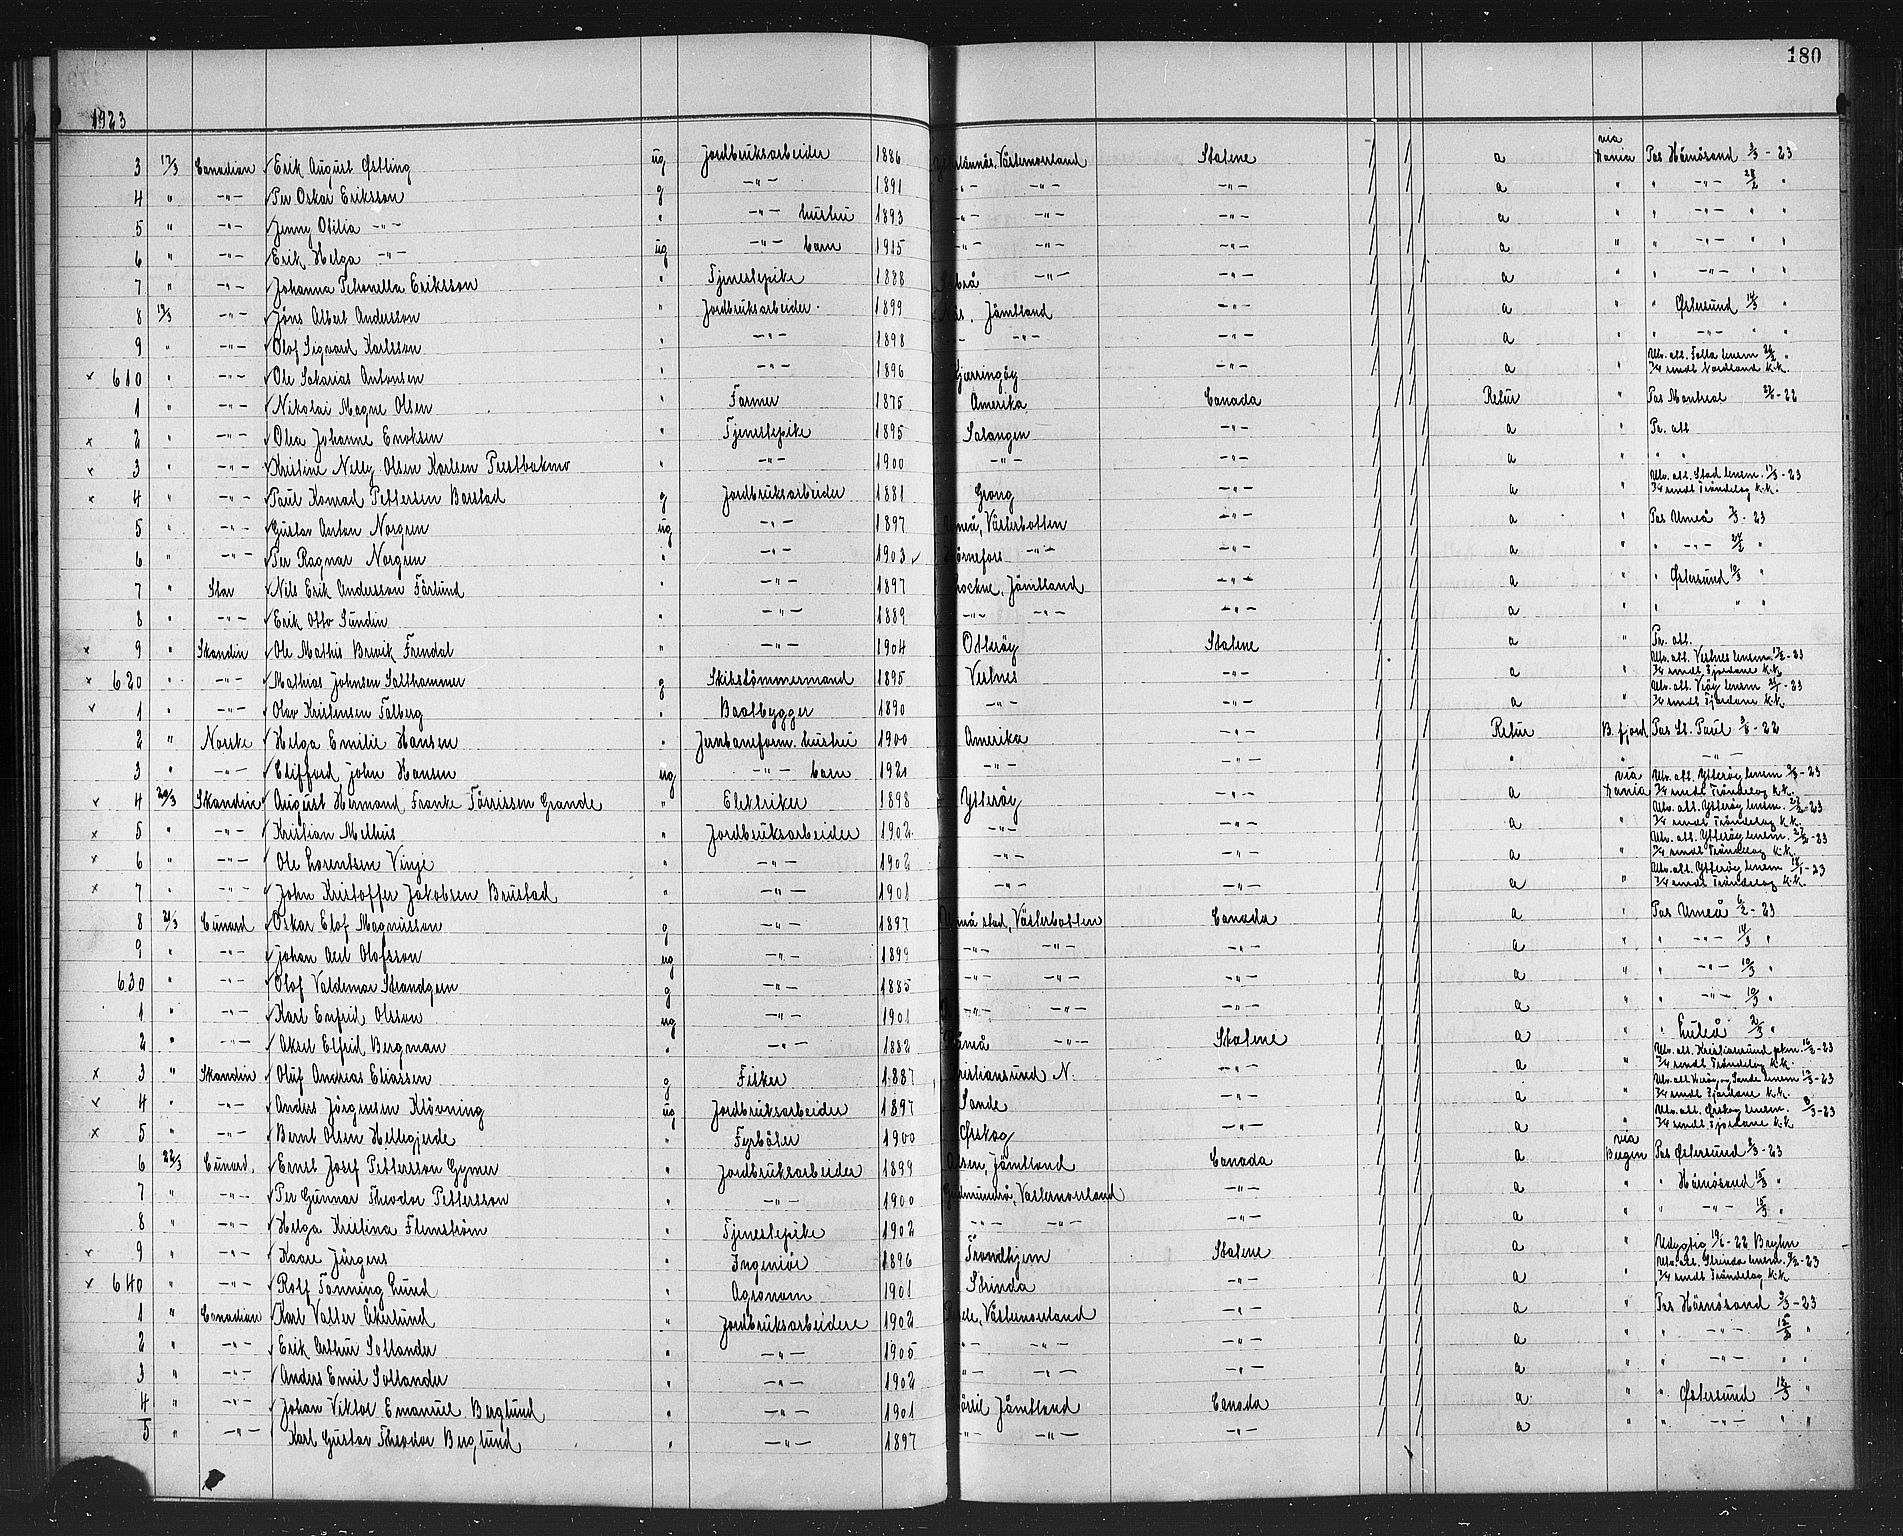 180
1923
3 17/3 Canadian Erik August Østling ug Jordbruksarbeider 1886 Västernorrland Statene a via Dania Pas Härnösand 3/3-23
4 " -"- Per Oskar Eriksson g -"- 1891 -"- -"- -"- a " " -"- 28/2 "
5 " -"- Jenny Otilia -"- " -"- hustru 1893 -"- -"- -"- a " " -"- " "
6 " -"- Erik Helga -"- ug -"- barn 1915 -"- -"- -"- a " " -"- " "
7 " -"- Johanna Petronella Eriksson " Tjenestepike 1888 -"- -"- a " " -"- " "
8 19/3 -"- Jöns Albert Andersson " Jordbruksarbeider 1899 Jämtland -"- a " " Østersund 14/3 "
9 " -"- Olof Sigvard Karlsson " -"- 1898 - -"- -"- a " " -"- " "
x 610 " -"- Ole Sakarias Antonsen " -"- 1896 Kjerringøy -"- a Utv. att. Folla lensm 24/2 " 3/4 rundt Nordland K.K.
1 " -"- Nikolai Magne Olsen " Farmer 1875 Amerika Canada Retur " Pas Montreal -22
x 2 " -"- Olea Johanne Enoksen " Tjenestepike 1895 Salangen -"- a " Pr. att
x 3 " -"- Kristine Nelly Olsen Karlsen Prestbakmo " -"- 1900 -"- -"- a " " "
x 4 " -"- Paul Konrad Pettersen Barstad g Jordbruksarbeider 1881 Grong -"- a " Utv. att. Stod lensm. 17/3-23 3/4 rundt Trøndelag K.K.
5 " -"- Gustav Anton Norgren ug -"- 1897 Umeå, Västerbotten -"- a " Pas Umeå 3/3-23
6 " -"- Per Ragnar Norgren " -"- 1903 Hörnefors -"- -"- a " " -"- 27/2 "
7 " Star Nils Erik Andersson Färlund " -"- 1897 Lockne, Jämtland -"- a " " Østersund 10/3 "
8 " -"- Erik Otto Sundin " -"- 1889 -"- -"- -"- a " " " "
x 9 " Skandin Ole Mathis Brevik Frendal " -"- 1904 Otterøy Statene a " Pr. att.
x 620 " -"- Mathias Johnsen Salthammer g Skibstømmermand 1895 Vestnes -"- a " Utv. att. Vestnes lensm. 17/3-23 3/4 rundt Fjordane K.K.
x 1 " -"- Olav Kristensen Talberg " Baatbygger 1890 -"- -"- a " Utv. att. Veøy lensm 21/1-23 3/4 rundt Fjordane K.K.
2 " Norske Helga Emilie Hansen " Jernbaneform. hustru 1900 Amerika -"- Retur B. fjord Pas St. Paul -22
3 " -"- Clifford John Hansen ug -"- barn 1921 -"- -"- " " -"-
x 4 20/3 Skandin August Hermand Franke Tørrissen Grande " Elektriker 1898 Ytterøy -"- a via Dania Utv. att. Ytterøy lensm -23 3/4 rundt Trøndelag K.K.
x 5 " -"- Kristian Melhus " Jordbruksarbeider 1902 -"- -"- a " Utv. att. Ytterøy lensm. 27/2-23 3/4 rundt Trøndelag K.K.
x 6 " -"- Ole Lorentsen Vinje " -"- 1902 -"- -"- a " Utv. att. Ytterøy lensm. 27/2-23 3/4 rundt Trøndelag K.K.
x 7 " -"- John Kristoffer Jakobsen Brustad " -"- 1901 -"- -"- a " Utv. att. Ytterøy lensm 18/1-23 3/4 rundt Trøndelag K.K.
8 21/3 Cunard Oskar Elof Magnusson g -"- 1897 Umeå stad, Västerbotten Canada a " Pas Umeå 6/2-23
9 " -"- Johan Axel Olofsson ug -"- 1899 -"- -"- -"- a " " -"- 14/3 "
630 " -"- Olof Valdemar Strandgren g -"- 1885 -"- -"- -"- a " " -"- 10/3 "
1 " -"- Karl Enfrid Olsson ug -"- 1901 -"- -"- -"- a " " -"- 10/3 "
2 " -"- Aksel Elfrid Bergman " -"- 1882 Råneå -"- Statene a " " Luleå 2/3 "
x 3 " Skandin Oluf Andreas Eliassen g Fisker 1887 Kristiansund N. -"- a " Utv. att. Kristiansund pkm. 16/3-23 3/4 rundt Trøndelag K.K.
x 4 " -"- Anders Jørgensen Kløvning ug Jordbruksarbeider 1897 Sande -"- a " Utv. att. Herøy og Sande lensm 12/3-23 3/4 rundt Fjordane K.K.
x 5 " -"- Bernt Olsen Hellegjerde " Fyrbøter 1900 Ørskog -"- a " Utv. att. Ørskog lensm. 8/3-23 3/4 rundt Fjordane K.K
6 22/3 Cunard. Ernst Josef Pettersson Gymer " Jordbruksarbeider 1899 Alsen, Jämtland Canada a via Bergen Pas Østersund 3/3-23
7 " -"- Per Gunnar Theodor Pettersson " -"- 1900 Gudmundrå, Västernorrland -"- a " " Härnösand 15/3 "
8 " -"- Helga Kristina Flemström " Tjenestepike 1902 -"- -"- -"- a " " -"- 15/3 "
x 9 " -"- Kaare Jürgens " Ingeniør 1896 Trondhjem Statene a " Udygtig 19/6-22 Brylun
x 640 " -"- Rolf Tonning Lund " Agronom 1901 Strinda -"- a " Utv. att. Strinda lensm. -23 3/4 rundt Trøndelag K.K
1 " Canadian Karl Valter Åkerlund " Jordbruksarbeidere 1902 Västernorrland -"- a " Pas Härnösand 3/3-23
2 " -"- Erik Arthur Sollander " -"- 1905 -"- -"- -"- a " " -"- 15/3 "
3 " -"- Anders Emil Sollander " -"- 1902 -"- -"- -"- a " " -"- " "
4 " -"- Johan Viktor Emanuel Berglund " -"- 1901 Mörsil Jämtland Canada a " " Østersund 12/3 "
5 " -"- Karl Gustav Theodor Berglund " -"- 1897 -"- -"- -"- a " " -"- " "